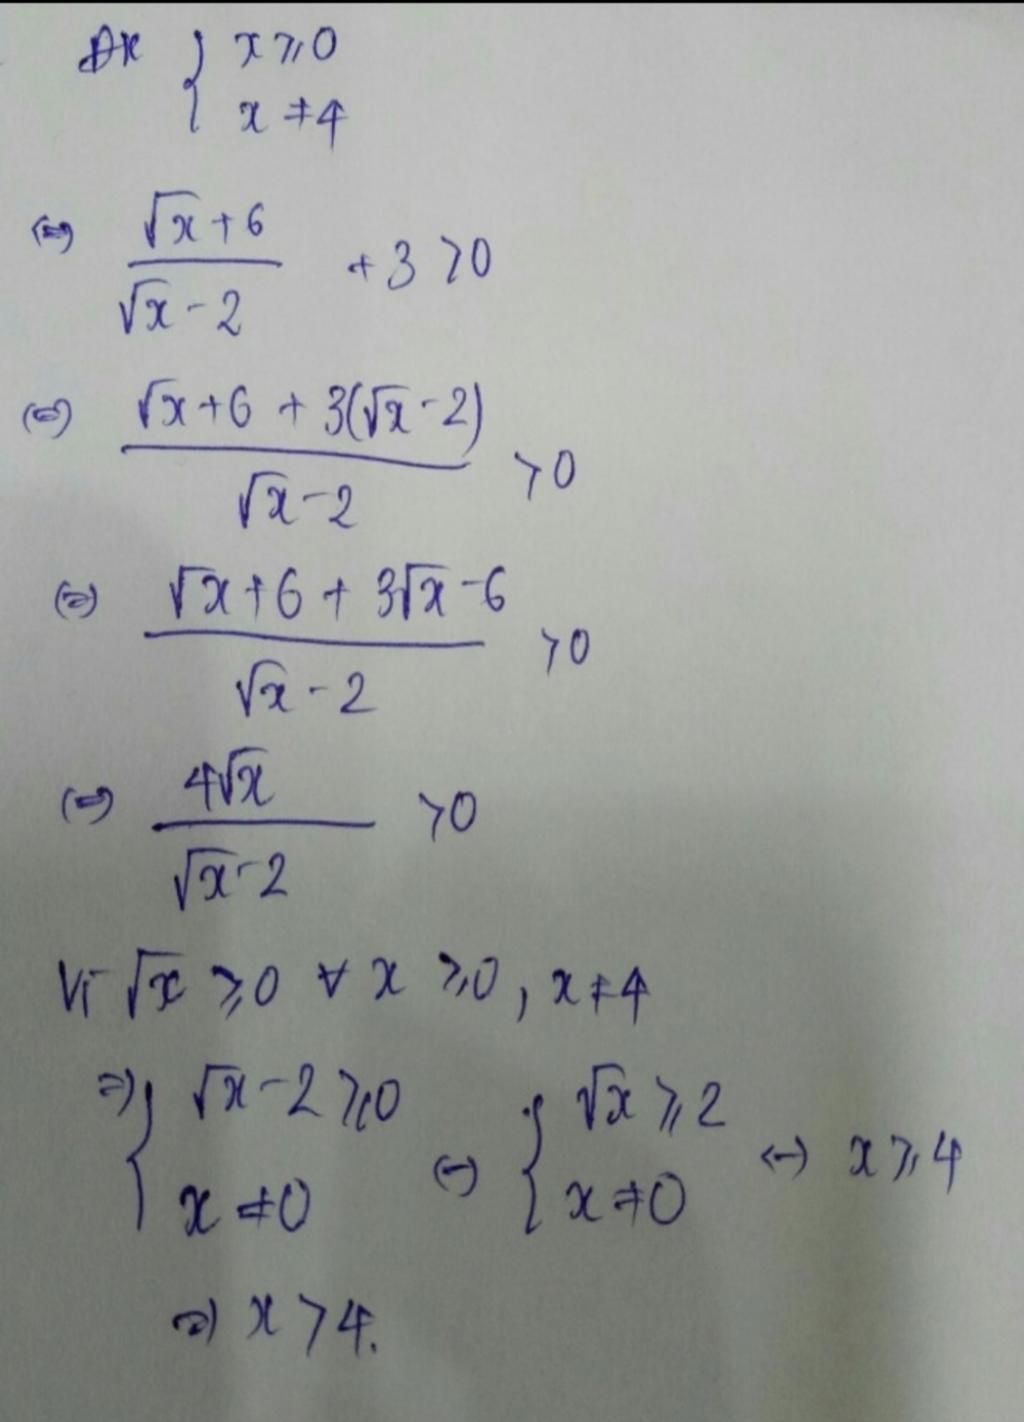 ĐK { x ⩾ 0
x ≠ 4
(=) (√x + 6)/(√x - 2) + 3 > 0
(=) (√x + 6 + 3(√x - 2))/(√x - 2) > 0
(=) (√x + 6 + 3√x - 6)/(√x - 2) > 0
(=) 4√x/(√x - 2) > 0
Vì √x ⩾ 0 ∀ x ⩾ 0, x ≠ 4
=> { √x - 2 ⩾ 0 (=) { √x ⩾ 2 (=) x ⩾ 4
x ≠ 0 x ≠ 0
=> x > 4.